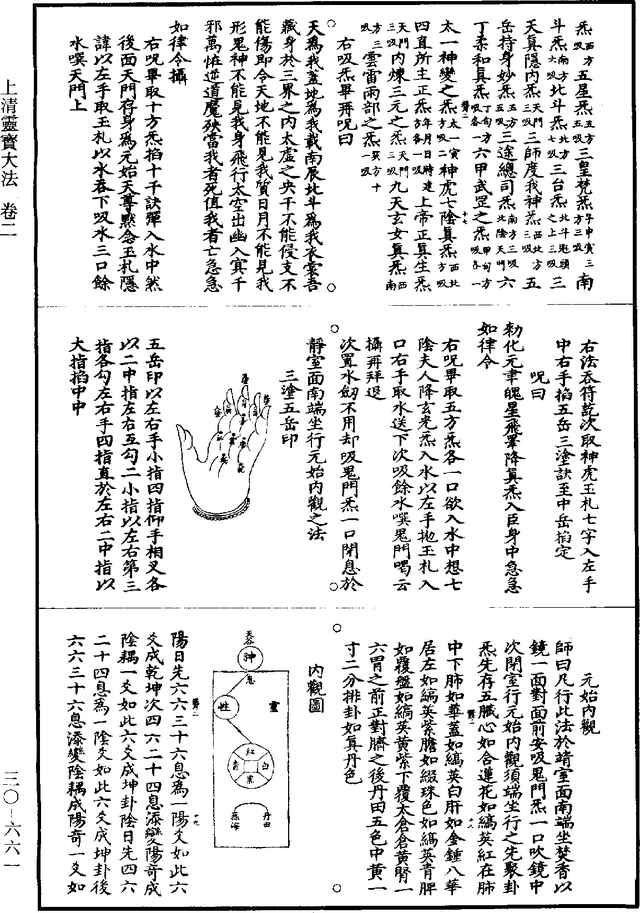 上清靈寶大法 卷二
三〇-六六一
炁西方五星炁五方三皇梵炁午中寅三南
斗炁南方北斗炁北方三台炁北斗魁頭三
天真隱內炁天門三師度我神炁西北方五
岳持身妙炁五方三途總司炁南方三吸六
丁柔和真炁丁旬方六甲武罡之炁甲旬方
太一神變之炁太一寅神虎七陰真炁西北
四直所主正炁年月日時建上帝正真生炁
天門內煉三元之炁三天門九天玄女真炁西南
方三吸雲雷兩部之炁巽方十
吸
右吸炁畢再呪曰
天為我蓋地為我載南辰北斗為我衣裳吾
藏身於三界之內太虛之央干不能侵支不
能傷即令天地不能見我質日月不能見我
形鬼神不能見我身飛行太空出幽入冥千
邪萬恠逆道魔殃當我者死值我者亡急急
如律令攝
右呪畢取十方炁掐十干訣彈入水中然
後面天門存身為元始天尊默念玉札隱
諱以左手取玉札以水吞下吸水三口餘
水噀天門上
右法吞符訖次取神虎玉札七字入左手
中右手掐五岳三塗訣至中岳掐定
呪曰
勑化元聿魄星飛單降真炁入臣身中急急
如律令
右呪畢取五方炁各一口欲入水中想七
陰夫人降玄光炁入水以左手抛玉札入
口右手取水送下次吸餘水噀鬼門喝云
攝再拜退
次置水劍不用却吸鬼門炁一口閉息於
靜室面南端坐行元始內觀之法
三塗五岳印
五岳印以左右手小指四指仰手相叉各
以二中指左右互勾二小指以左右第三
指各勾左右手四指直於左右二中指以
大指掐中中
元始內觀
師曰凡行此法於靖室面南端坐焚香以
鏡一面對面前安吸鬼門炁一口吹鏡中
次閉室行元始內觀須端坐行之先聚卦
炁先存五臟心如合蓮花如縞英紅在肺
中下肺如華蓋如縞英白肝如金鍾八華
居左如縞英紫膽如綴珠色如縞英青脾
如覆盤如縞英黃紫下覆太倉倉黃腎一
六胃之前正對臍之後丹田五色中黃一
寸二分排卦如真丹色
內觀圖
神
息
性
靈
紅
青
白
黑
丹田
陽日先六六三十六息為一陽爻如此六
爻成乾坤次四六二十四息添變陽奇成
陰耦一爻如此六爻成坤卦陰日先四六
二十四息為一陰爻如此六爻成坤卦後
六六三十六息添變陰耦成陽奇一爻如